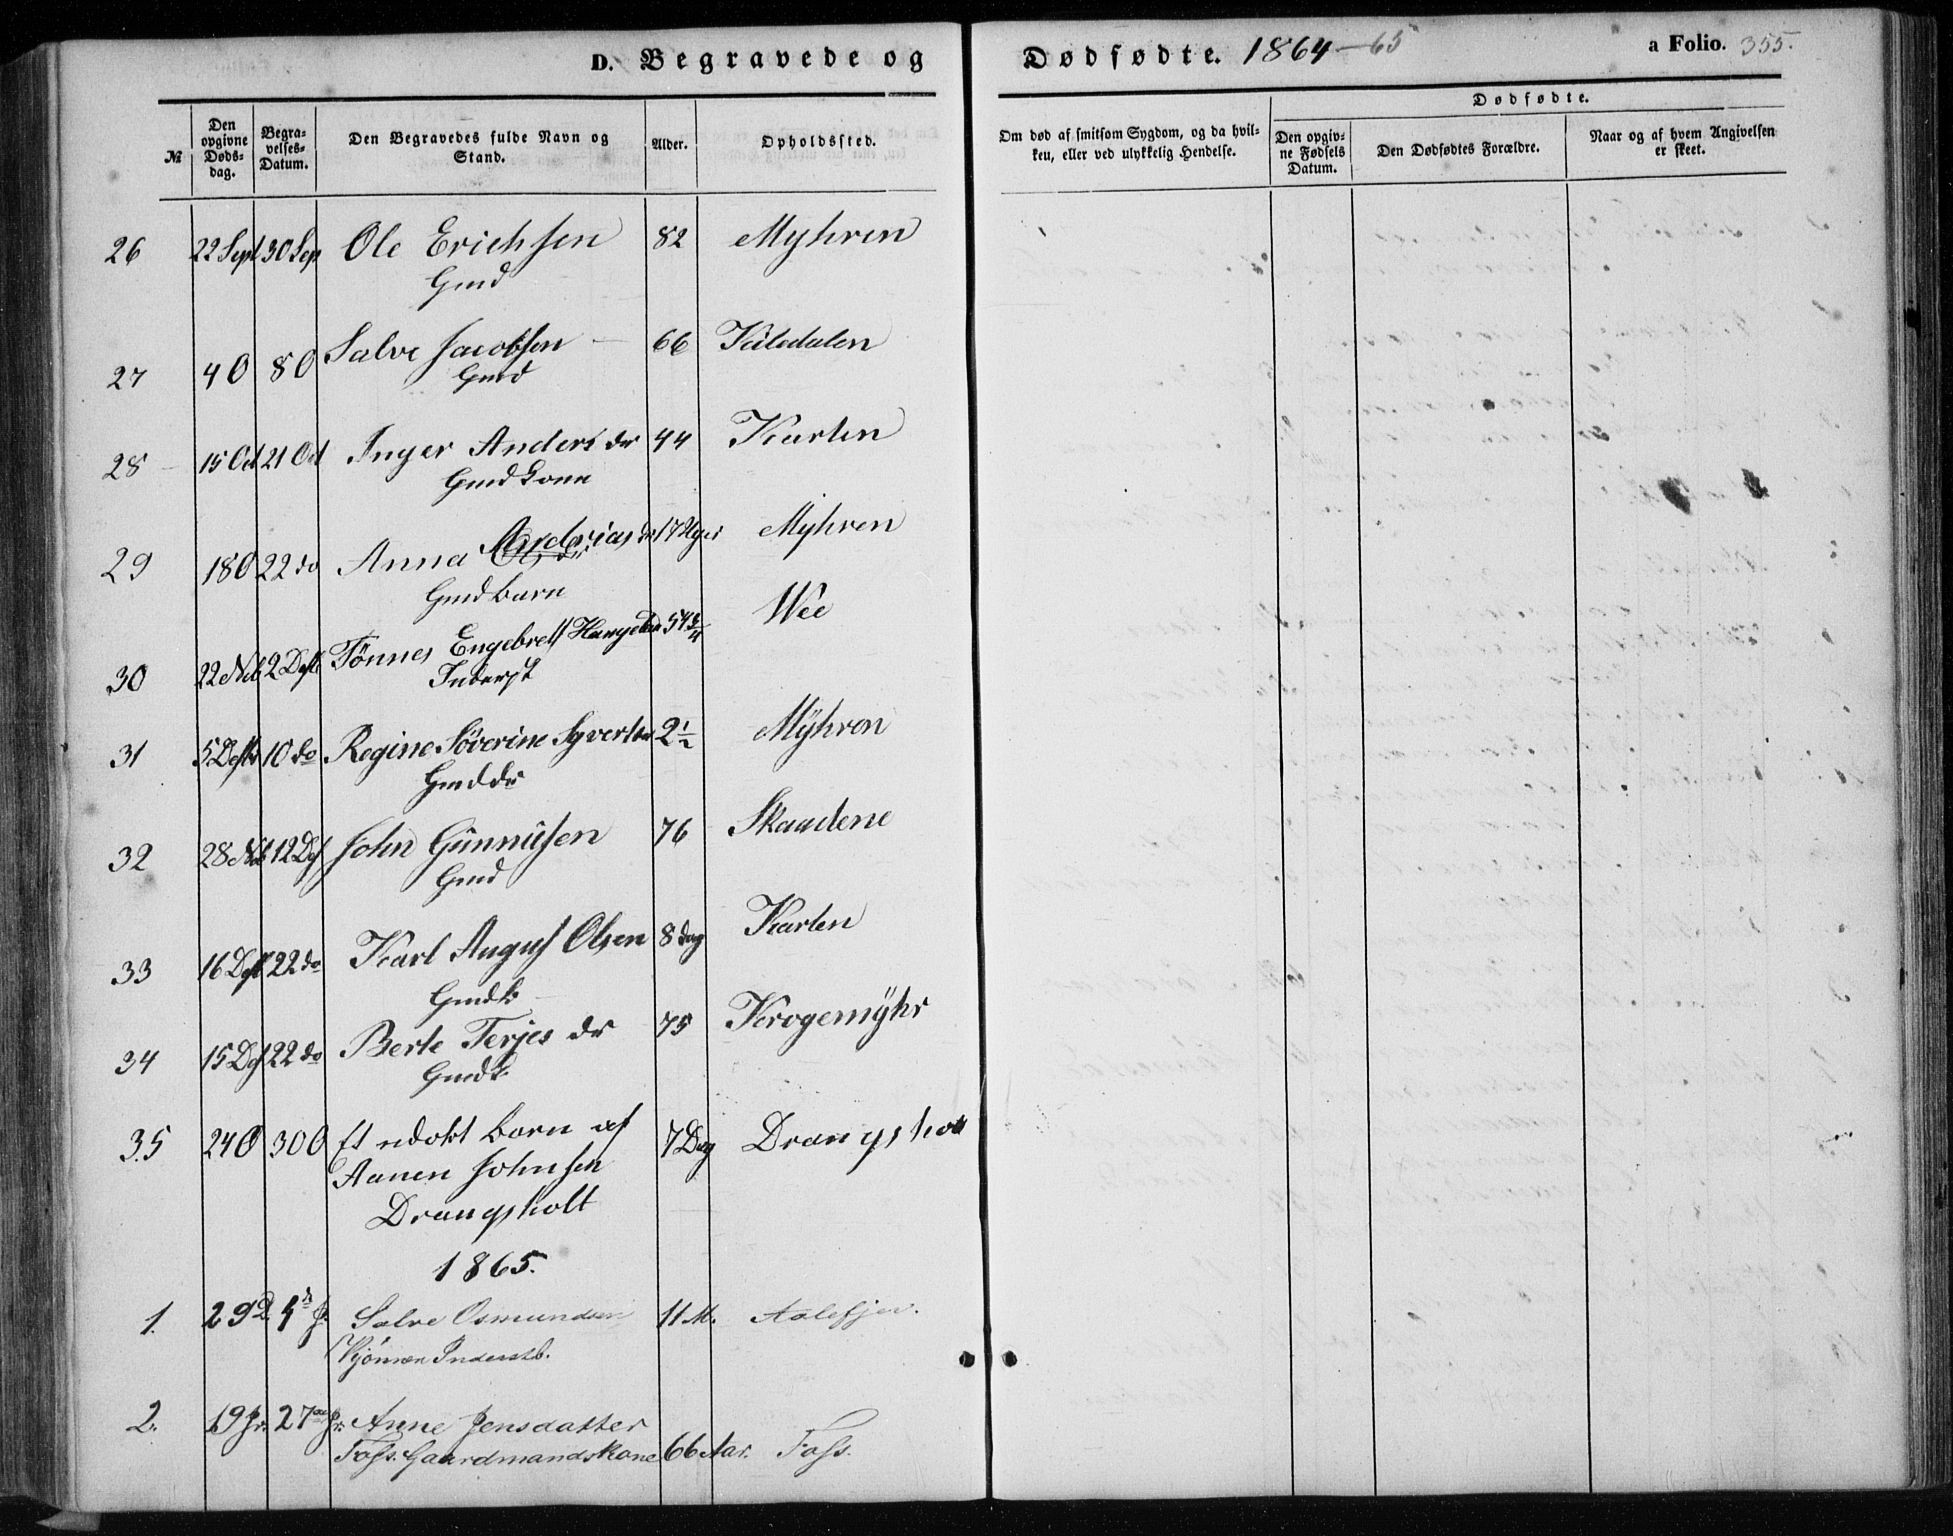 D. Begravede og Dødfødte. 1864-65 a Folio. 355.
Dødfødte.
№ Den opgivne Døds-dag. Begra-velses-Datum. Den Begravedes fulde Navn og Stand. Alder. Opholdssted. Om død af smitsom Sygdom, og da hvil-ken, eller ved ulykkelig Hendelse. Den opgiv-ne Fødsels Datum. Den Dødfødtes Forældre. Naar og af hvem Angivelsen er skeet.
26 22 Sept 30 Sep Ole Erichsen 82 Myhren
Gmd
27 4 O 8 O Salve Jacobsen 66 Kiledalen
Gmd
28 15 Oct 21 Oct Inger Anders dr 44 Karten
Gmd Kone
29 18 O 22 do Anna Andrias dr 17 Uger Myhren
Gmd barn
30 22 Nob 2 Desb Tønnes Engebrets 54 3/4 Wee
Inderst
31 5 Desbr 10 do Regine Søverine Syvertsdr 2 1/2 Myhren
Gmd dr
32 28 Nob 12 Des John Gunnulsen 76 Skaadene
Gmd
33 16 Desb 22 do Karl August Olsen 8 dag Karten
Gmdb
34 15 Des 22 do Berte Terjes dr 75 Krogemyhr
Gmdk
35 24 O 30 O Et udøbt barn af 7 Dag Drangsholt
Aanen Johnsen
Drangsholt
1865.
1. 29 D. 4 de J. Salve Osmundsen 11 M. Aalefjer.
Inderstb.
2. 19 Jr. 27 de Jr. Anne Jensdatter
Foss. Gaardmandskone 66 Aar. Foss.